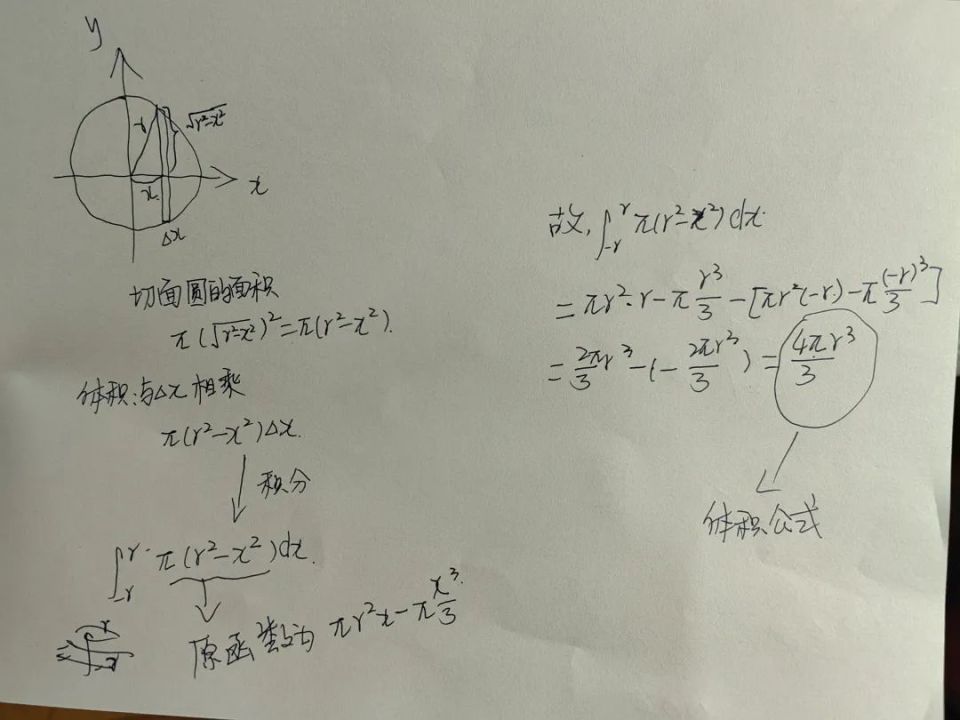 y
r
√r²-x²
x
x
Δx
切面圆的面积
π(√r²-x²)²=π(r²-x²).
体积:与Δx相乘
π(r²-x²)Δx.
积分
∫₋ᵣʳ π(r²-x²)dx.
原函数为 πr²x-π x³/3
故, ∫₋ᵣʳ π(r²-x²)dx.
=πr²·r-π r³/3-[πr²(-r)-π (-r)³/3]
=2π/3 r³-(-2πr³/3)=4πr³/3
体积公式